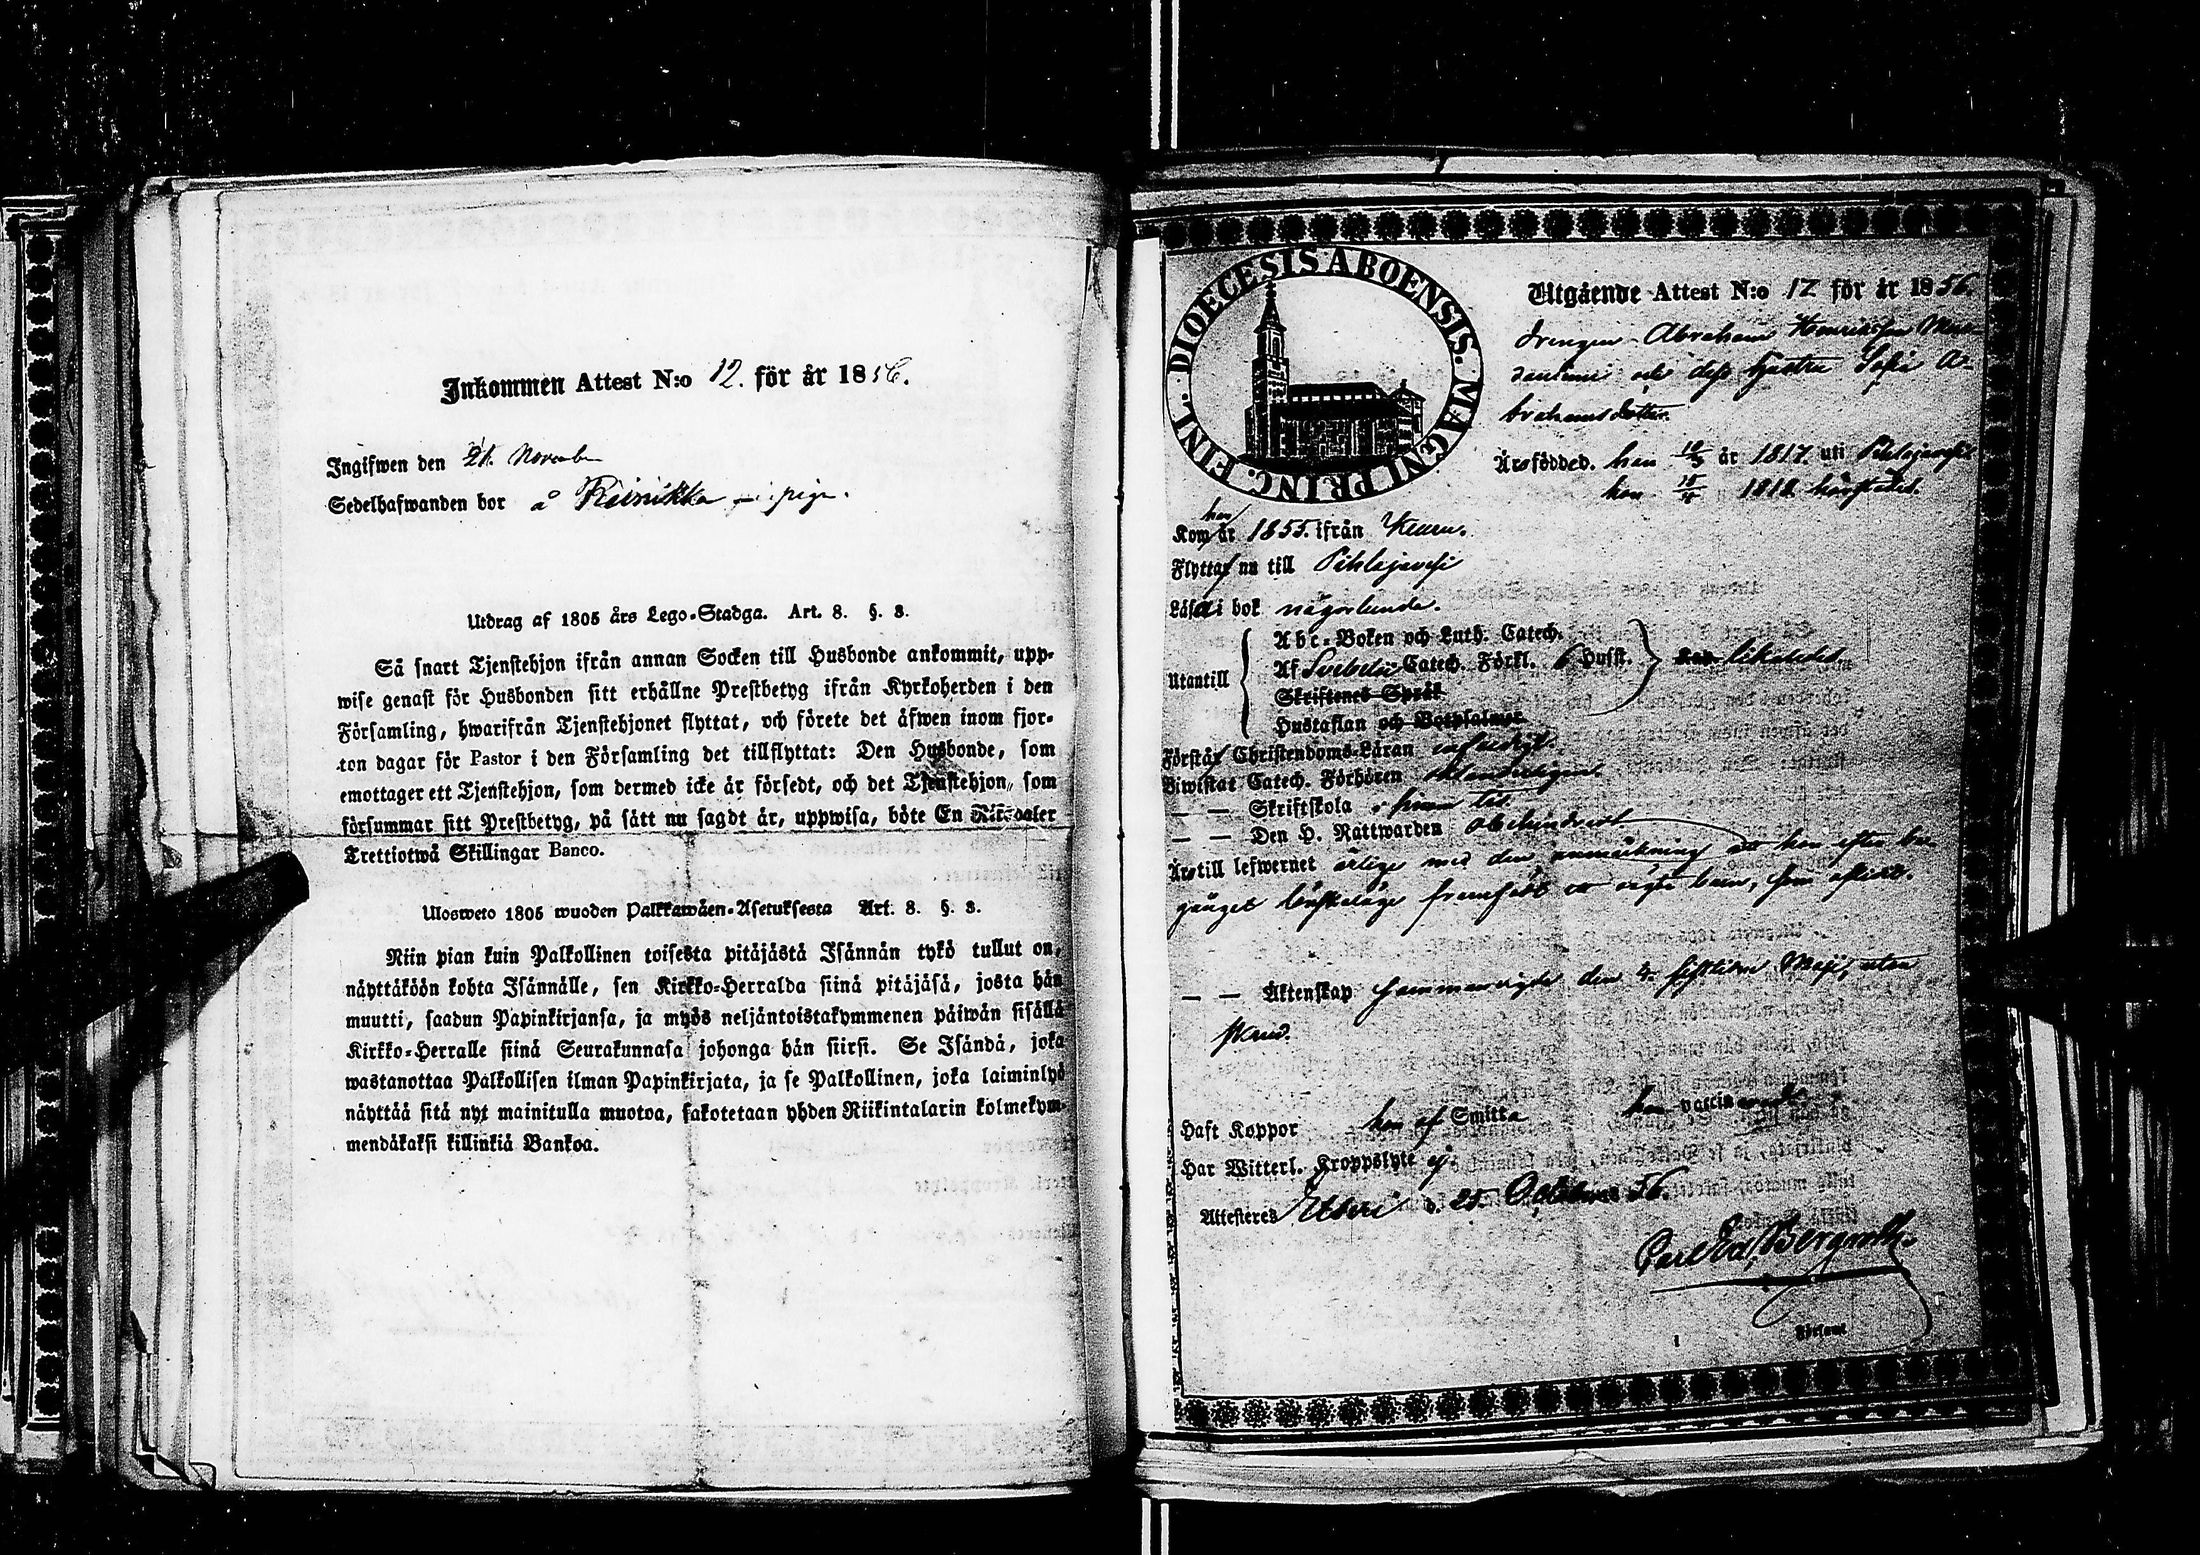 Inkommen Attest N:o 12. för år 1856.
Ingifwen den 21. November
Sedelhafwanden bor å Reinikka piga.
Utdrag af 1805 års Lego-Stadga. Art. 8. §. 3.
Så snart Tjenstehjon ifrån annan Socken till Husbonde ankommit, upp-
wise genast för Husbonden sitt erhållne Prestbetyg ifrån Kyrkoherden i den
Församling, hwarifrån Tjenstehjonet flyttat, och förete det äfwen inom fjor-
ton dagar för Pastor i den Församling det tillflyttat: Den Husbonde, som
emottager ett Tjenstehjon, som dermed icke är försedt, och det Tjenstehjon, som
försummar sitt Prestbetyg, på sätt nu sagdt är, uppwisa, böte En Riksdaler
Trettiotwå Skillingar Banco.
Ulosweto 1805 wuoden Palkkawäen-Asetuksesta Art. 8. §. 3.
Niin pian kuin Palkollinen toisesta pitäjästä Isännän tykö tullut on,
näyttäköön kohta Isännälle, sen Kirkko-Herralda siinä pitäjäsä, josta hän
muutti, saadun Papinkirjansa, ja myös neljäntoistakymmenen päiwän sisällä
Kirkko-Herralle siinä Seurakunnasa johonga hän siirsi. Se Isändä, joka
wastanottaa Palkollisen ilman Papinkirjata, ja se Palkollinen, joka laiminlyö
näyttää sitä nyt mainitulla muotoa, sakotetaan yhden Riikintalarin kolmekym-
mendäkaksi killinkiä Bankoa.
DIOECESIS ABOENSIS. MAGNI PRINC. FINL.
Utgående Attest N:o 12 för år 1856.
Drengen Abraham Henriksson
och dess hustru Sofia A-
brahamsdotter.
Är född d. han år 1817 uti Pihlajavesi
hon 1818 härstädes.
Kom han år 1855. ifrån Keuru.
Flytta nu till Pihlajavesi
Läsa i bok någorlunda.
Utantill
Abc-Boken och Luth. Catech.
Af Svebelii Catech. Förkl. 6 Hufst. likaledes
Skriftenes Språk
Hustaflan och Botpsalmer
Förstår Christendoms-Läran
Biwistat Catech. Förhören
— — Skriftskola i sinom tid
— — Den H. Nattwarden obehindradt
Är till lefwernet ärlige med den anmärkning att hon efter be-
gånget lönskaläge framfödt ett oägta barn, som aflidit.
— — Äktenskap sammanvigde den 4. sistlidne Maji, utan
Haft Koppor hon af Smitta han vaccinerad
Har Witterl. Kroppslyte ej.
Attesteres Etseri d. 25. October 56.
Carl Bergroth.
Församl
1